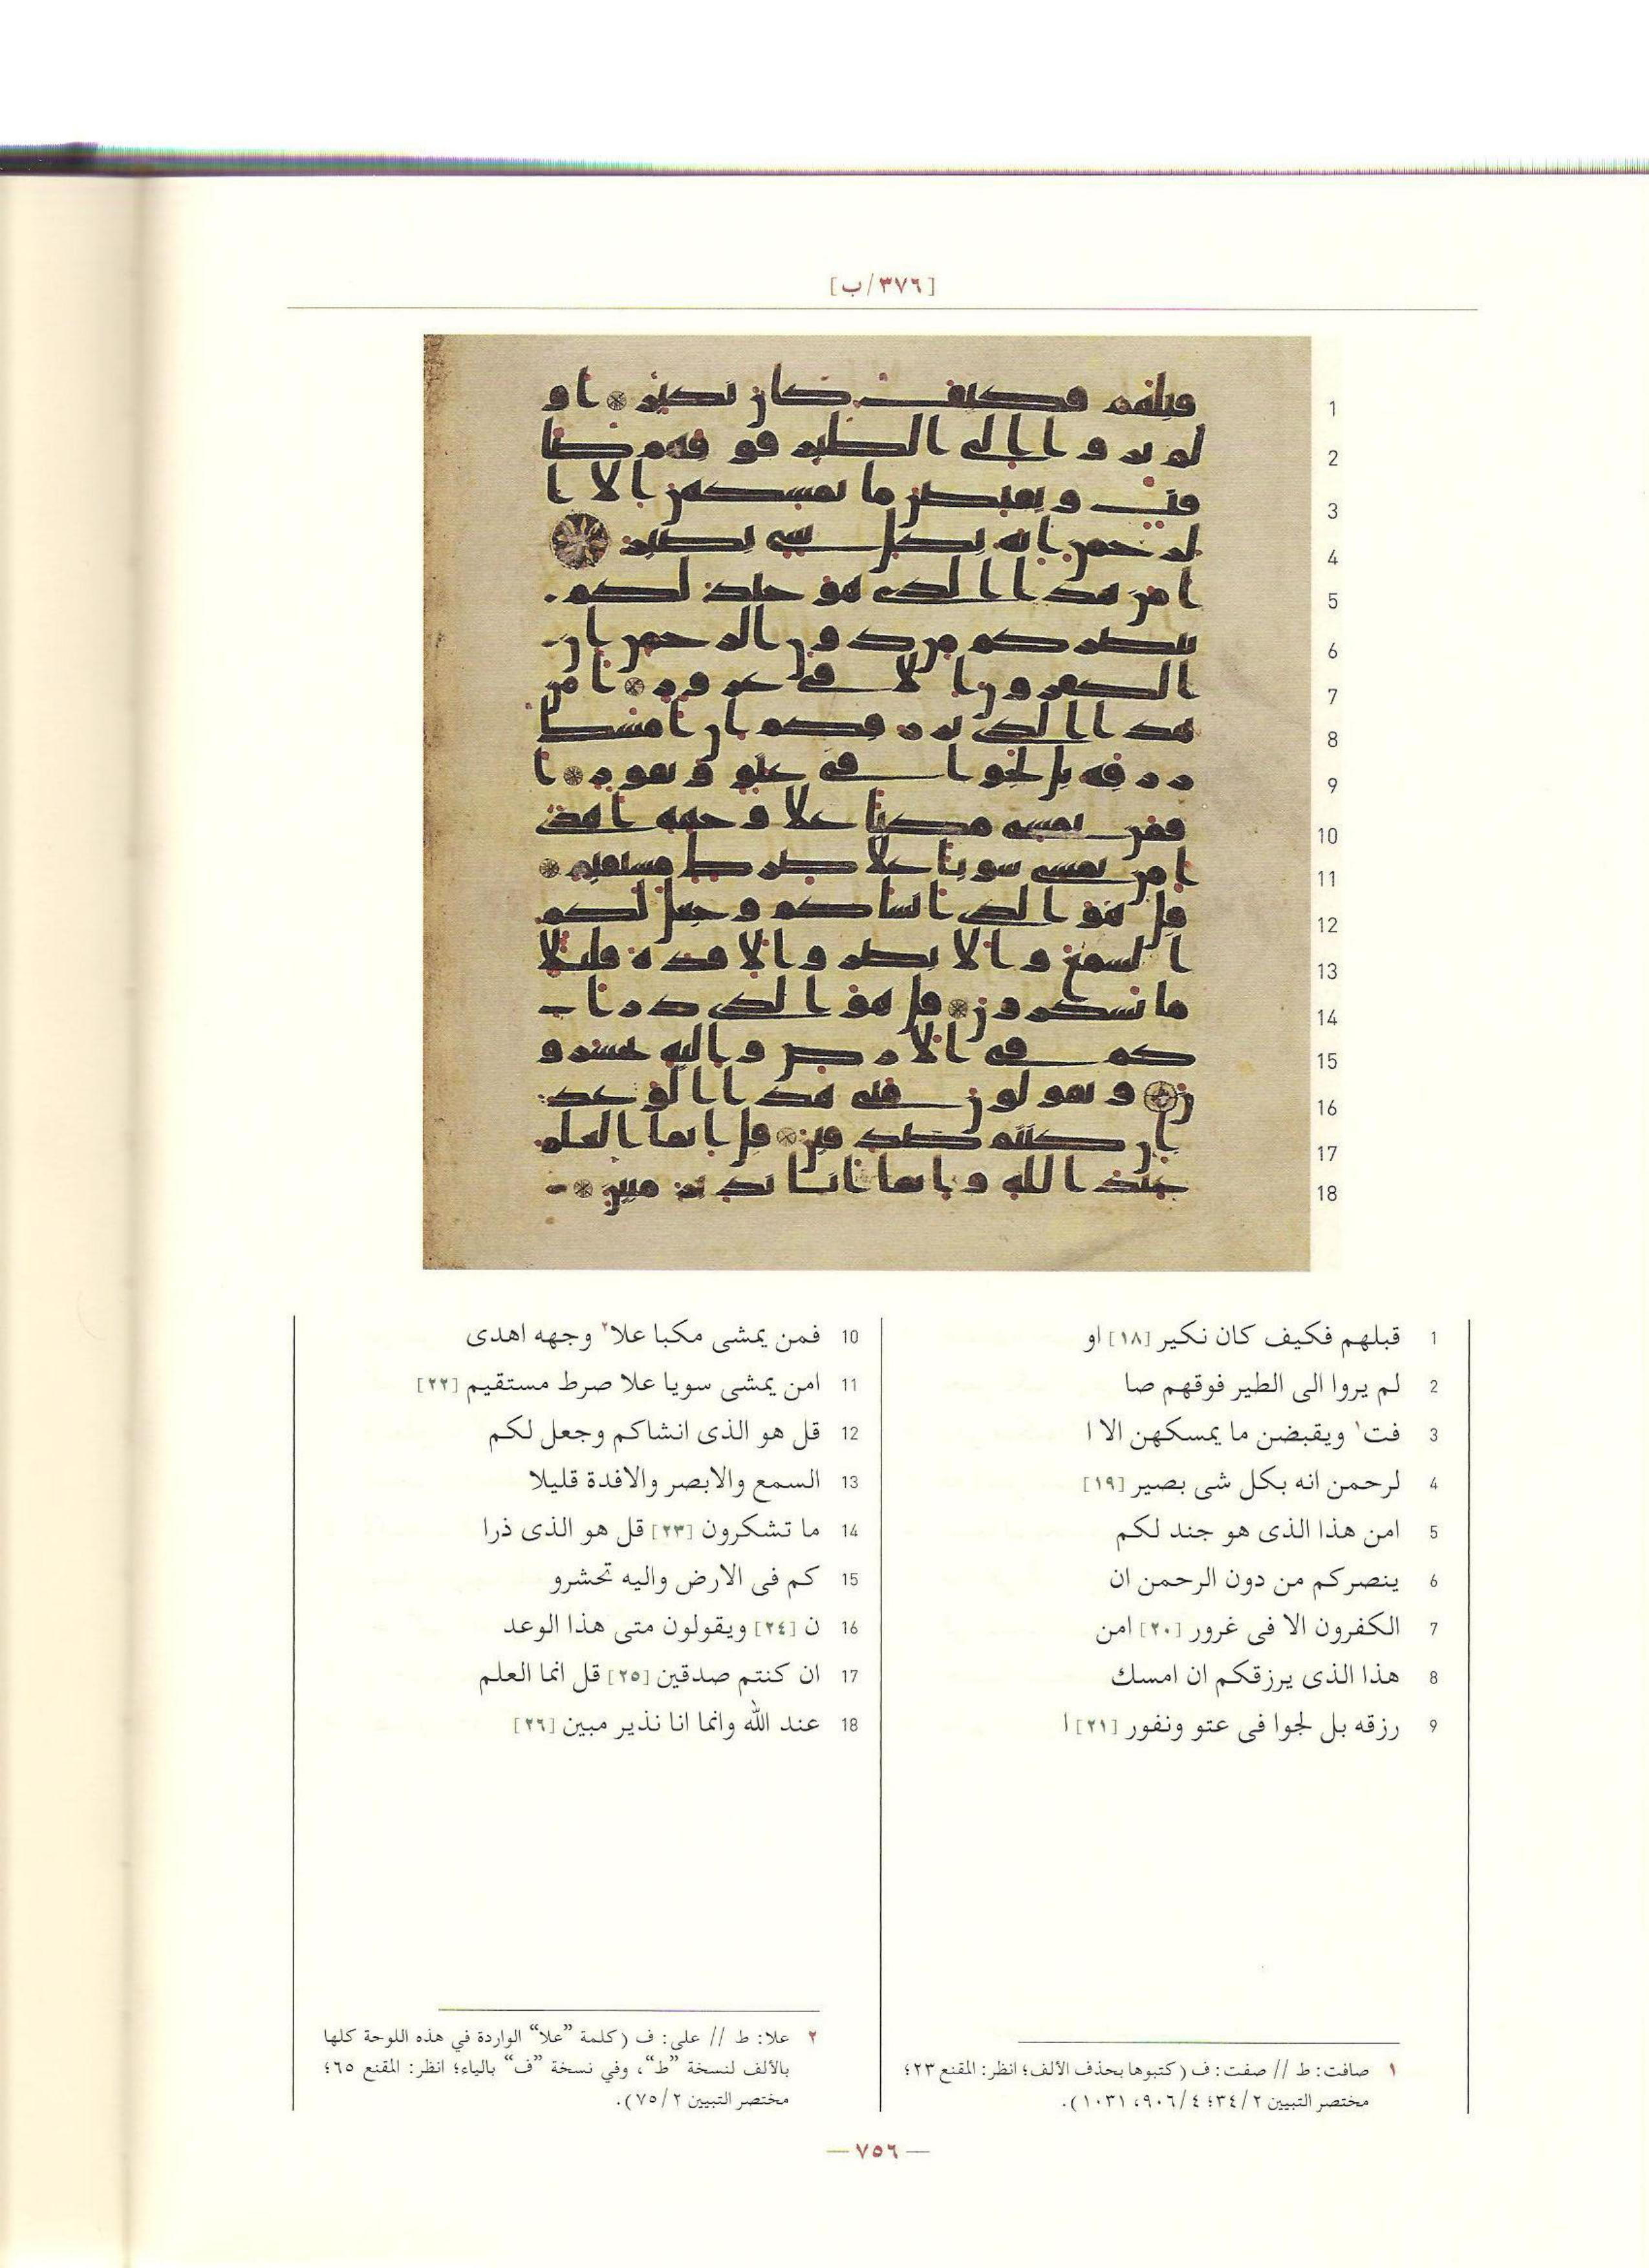 [٣٧٦/ب]
1 قبلهم فكيف كان نكير [١٨] او
2 لم يروا الى الطير فوقهم صا
3 فت¹ ويقبضن ما يمسكهن الا ا
4 لرحمن انه بكل شى بصير [١٩]
5 امن هذا الذى هو جند لكم
6 ينصركم من دون الرحمن ان
7 الكفرون الا فى غرور [٢٠] امن
8 هذا الذى يرزقكم ان امسك
9 رزقه بل لجوا فى عتو ونفور [٢١] ا
10 فمن يمشى مكبا علا² وجهه اهدى
11 امن يمشى سويا علا صرط مستقيم [٢٢]
12 قل هو الذى انشاكم وجعل لكم
13 السمع والابصر والافدة قليلا
14 ما تشكرون [٢٣] قل هو الذى ذرا
15 كم فى الارض واليه تحشرو
16 ن [٢٤] ويقولون متى هذا الوعد
17 ان كنتم صدقين [٢٥] قل انما العلم
18 عند الله وانما انا نذير مبين [٢٦]
١ صافت: ط // صفت: ف (كتبوها بحذف الألف؛ انظر: المقنع ٢٣؛
مختصر التبيين ٣٤/٢؛ ٩٠٦/٤، ١٠٣١).
٢ علا: ط // على: ف (كلمة ”علا“ الواردة في هذه اللوحة كلها
بالألف لنسخة ”ط“، وفي نسخة ”ف“ بالياء؛ انظر: المقنع ٦٥؛
مختصر التبيين ٧٥/٢).
— ٧٥٦ —